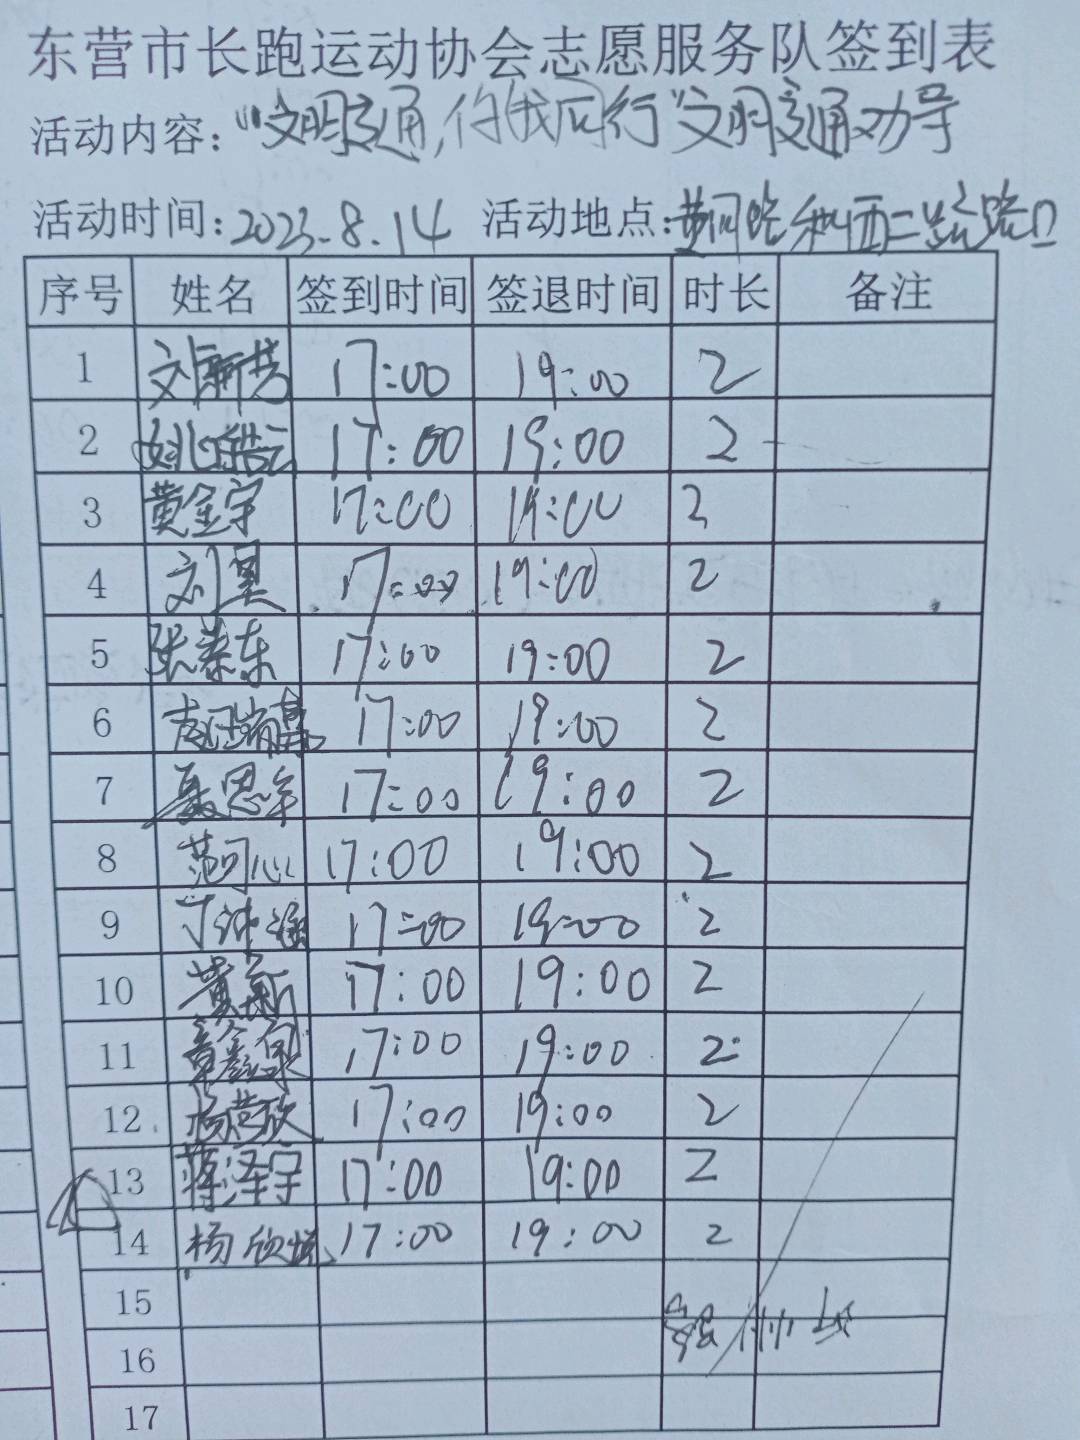 东营市长跑运动协会志愿服务队签到表
活动内容:“文明交通,你我同行”文明交通劝导
活动时间:2023.8.14 活动地点:黄河路和西二路路口
序号 姓名 签到时间 签退时间 时长 备注
1 刘新芳 17:00 19:00 2
2 17:00 19:00 2
3 黄金宇 17:00 19:00 2
4 刘昊 17:00 19:00 2
5 张荣东 17:00 19:00 2
6 17:00 19:00 2
7 聂思宇 17:00 19:00 2
8 范可心 17:00 19:00 2
9 17:00 19:00 2
10 17:00 19:00 2
11 章鑫泉 17:00 19:00 2
12 17:00 19:00 2
13 蒋泽宇 17:00 19:00 2
14 杨欣悦 17:00 19:00 2
15
16
17